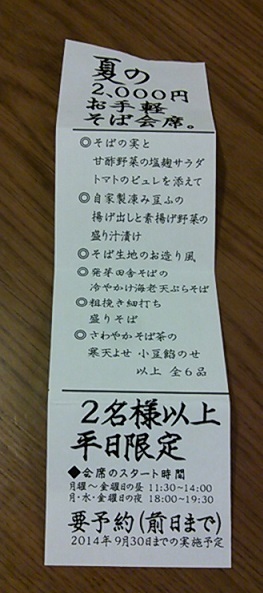 夏の
2,000円
お手軽
そば会席。
◎そばの実と
甘酢野菜の塩麹サラダ
トマトのピュレを添えて
◎自家製凍み豆ふの
揚げ出しと素揚げ野菜の
盛り汁漬け
◎そば生地のお造り風
◎発芽田舎そばの
冷やかけ海老天ぷらそば
◎粗挽き細打ち
盛りそば
◎さわやかそば茶の
寒天よせ 小豆餡のせ
以上 全6品
2名様以上
平日限定
◆会席のスタート時間
月曜～金曜日の昼 11:30~14:00
月・水・金曜日の夜 18:00~19:30
要予約(前日まで)
2014年9月30日までの実施予定